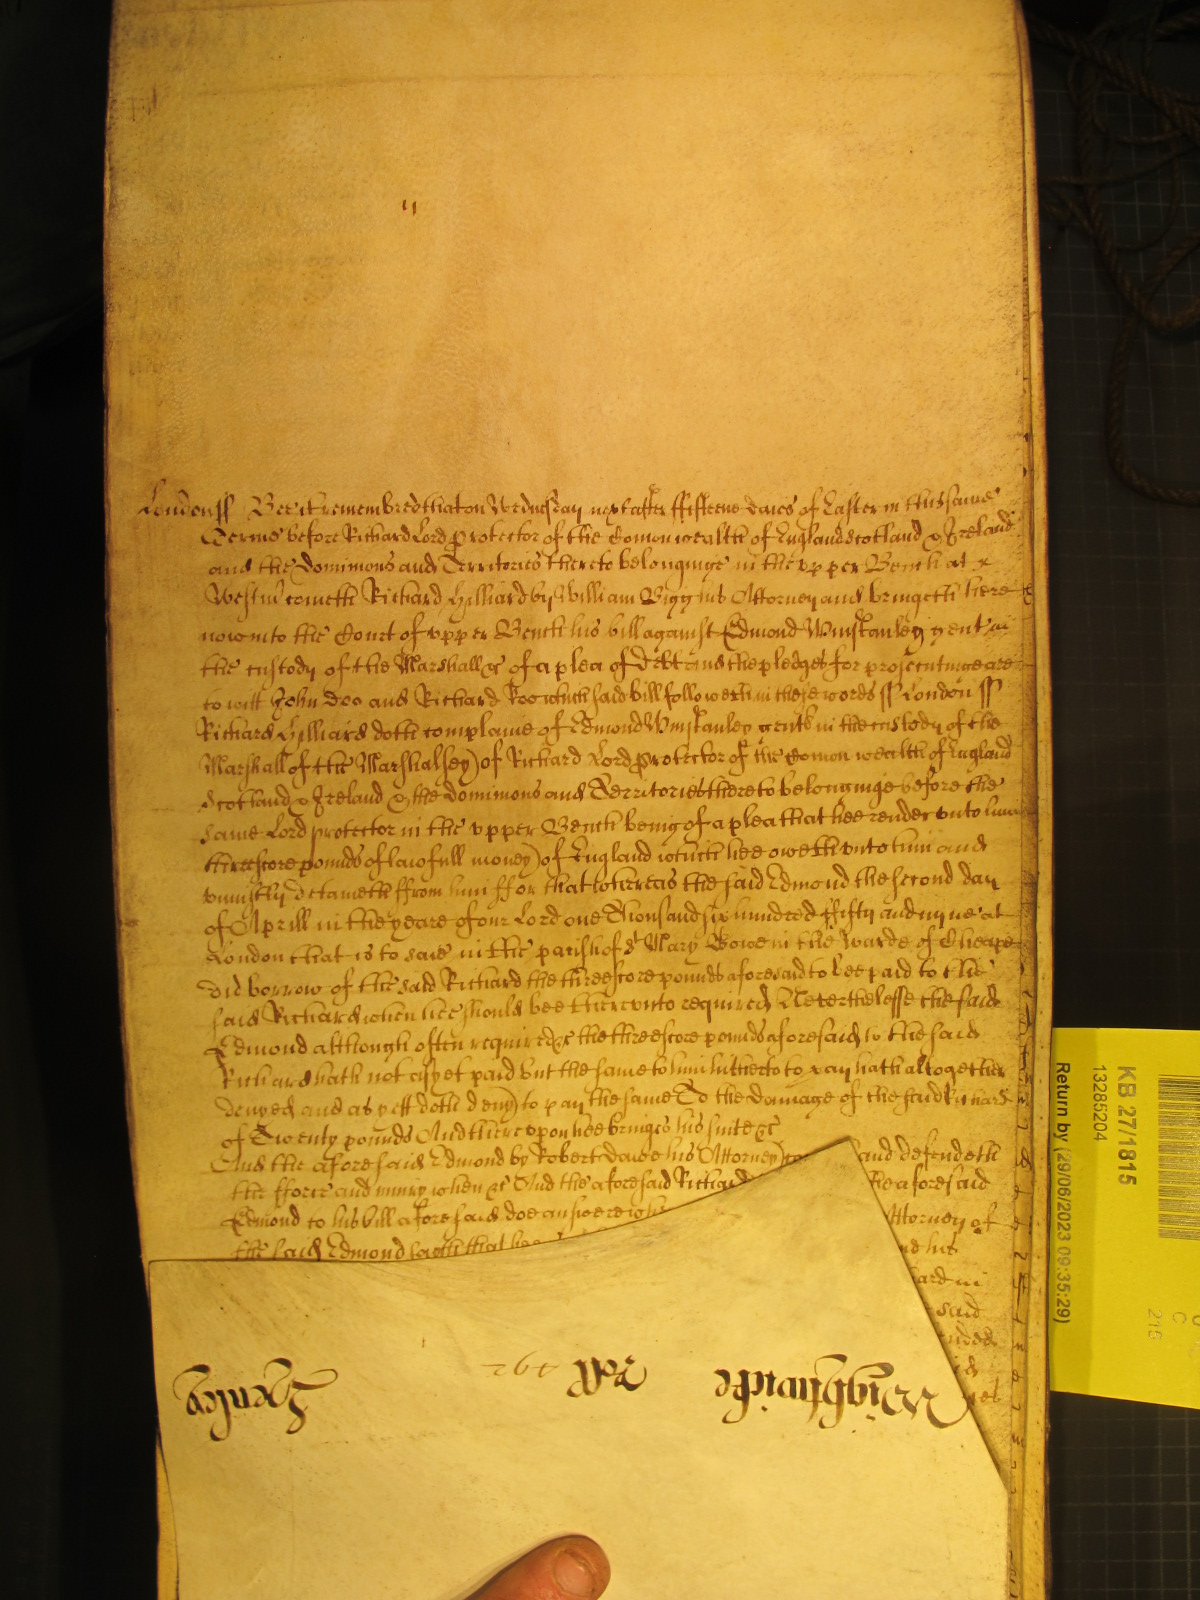 London ss Bee it remembred that on Wednesday next after ffifteene daies of Easter in this same
Terme before Richard Lord protector of the Comon wealth of England Scotland & Ireland
and the Dominions and Territories thereto belonginge in the vpper Bench at
Westm cometh Richard Hilliard by William Bigg his Attorney and bringeth here
now into the Court of vpper Bench his bill against Edmond Winstanley gent in
the custody of the Marshall &c of a plea of Debt and the pledges for prosecutinge are
to witt John Doo and Richard Roo which said bill followeth in these words ss London ss
Richard Hilliard doth complaine of Edmond Winstanley gent in the custody of the
Marshall of the Marshalsey of Richard Lord protector of the Comon wealth of England
Scotland & Ireland & the Dominions and Territories thereto belonginge before the
same Lord protector in the vpper Bench being of a plea that hee render vnto him
threescore pounds of lawfull money of England which hee oweth vnto him and
vniustly detaineth ffrom him ffor that whereas the said Edmond the second day
of Aprill in the yeare of our Lord one Thousand six hundred ffifty and nyne at
London that is to saie in the parish of St Mary Bowe in the Warde of Cheape
did borrow of the said Richard the threescore pounds aforesaid to bee paid to the
said Richard when hee should bee thereunto required Neverthelesse the said
Edmond although often required &c the threescore pounds aforesaid to the said
Richard hath not as yet paid but the same to him hitherto to pay hath altogether
denyed and as yett doth deny to pay the same To the Damage of the said Richard
of Twenty pounds And thereupon hee bringes his suite &c
And the aforesaid Edmond by Robert Dawe his Attorney and defendeth
the fforce and iniury when &c And the aforesaid Richard the aforesaid
Edmond to his bill aforesaid doe answere Attorney of
the said Edmond saith that hee and his
said
Wightwicke Roll 792 Zganley
KB 27/1815
13285204
Return by (29/06/2023 09:35:29)
215